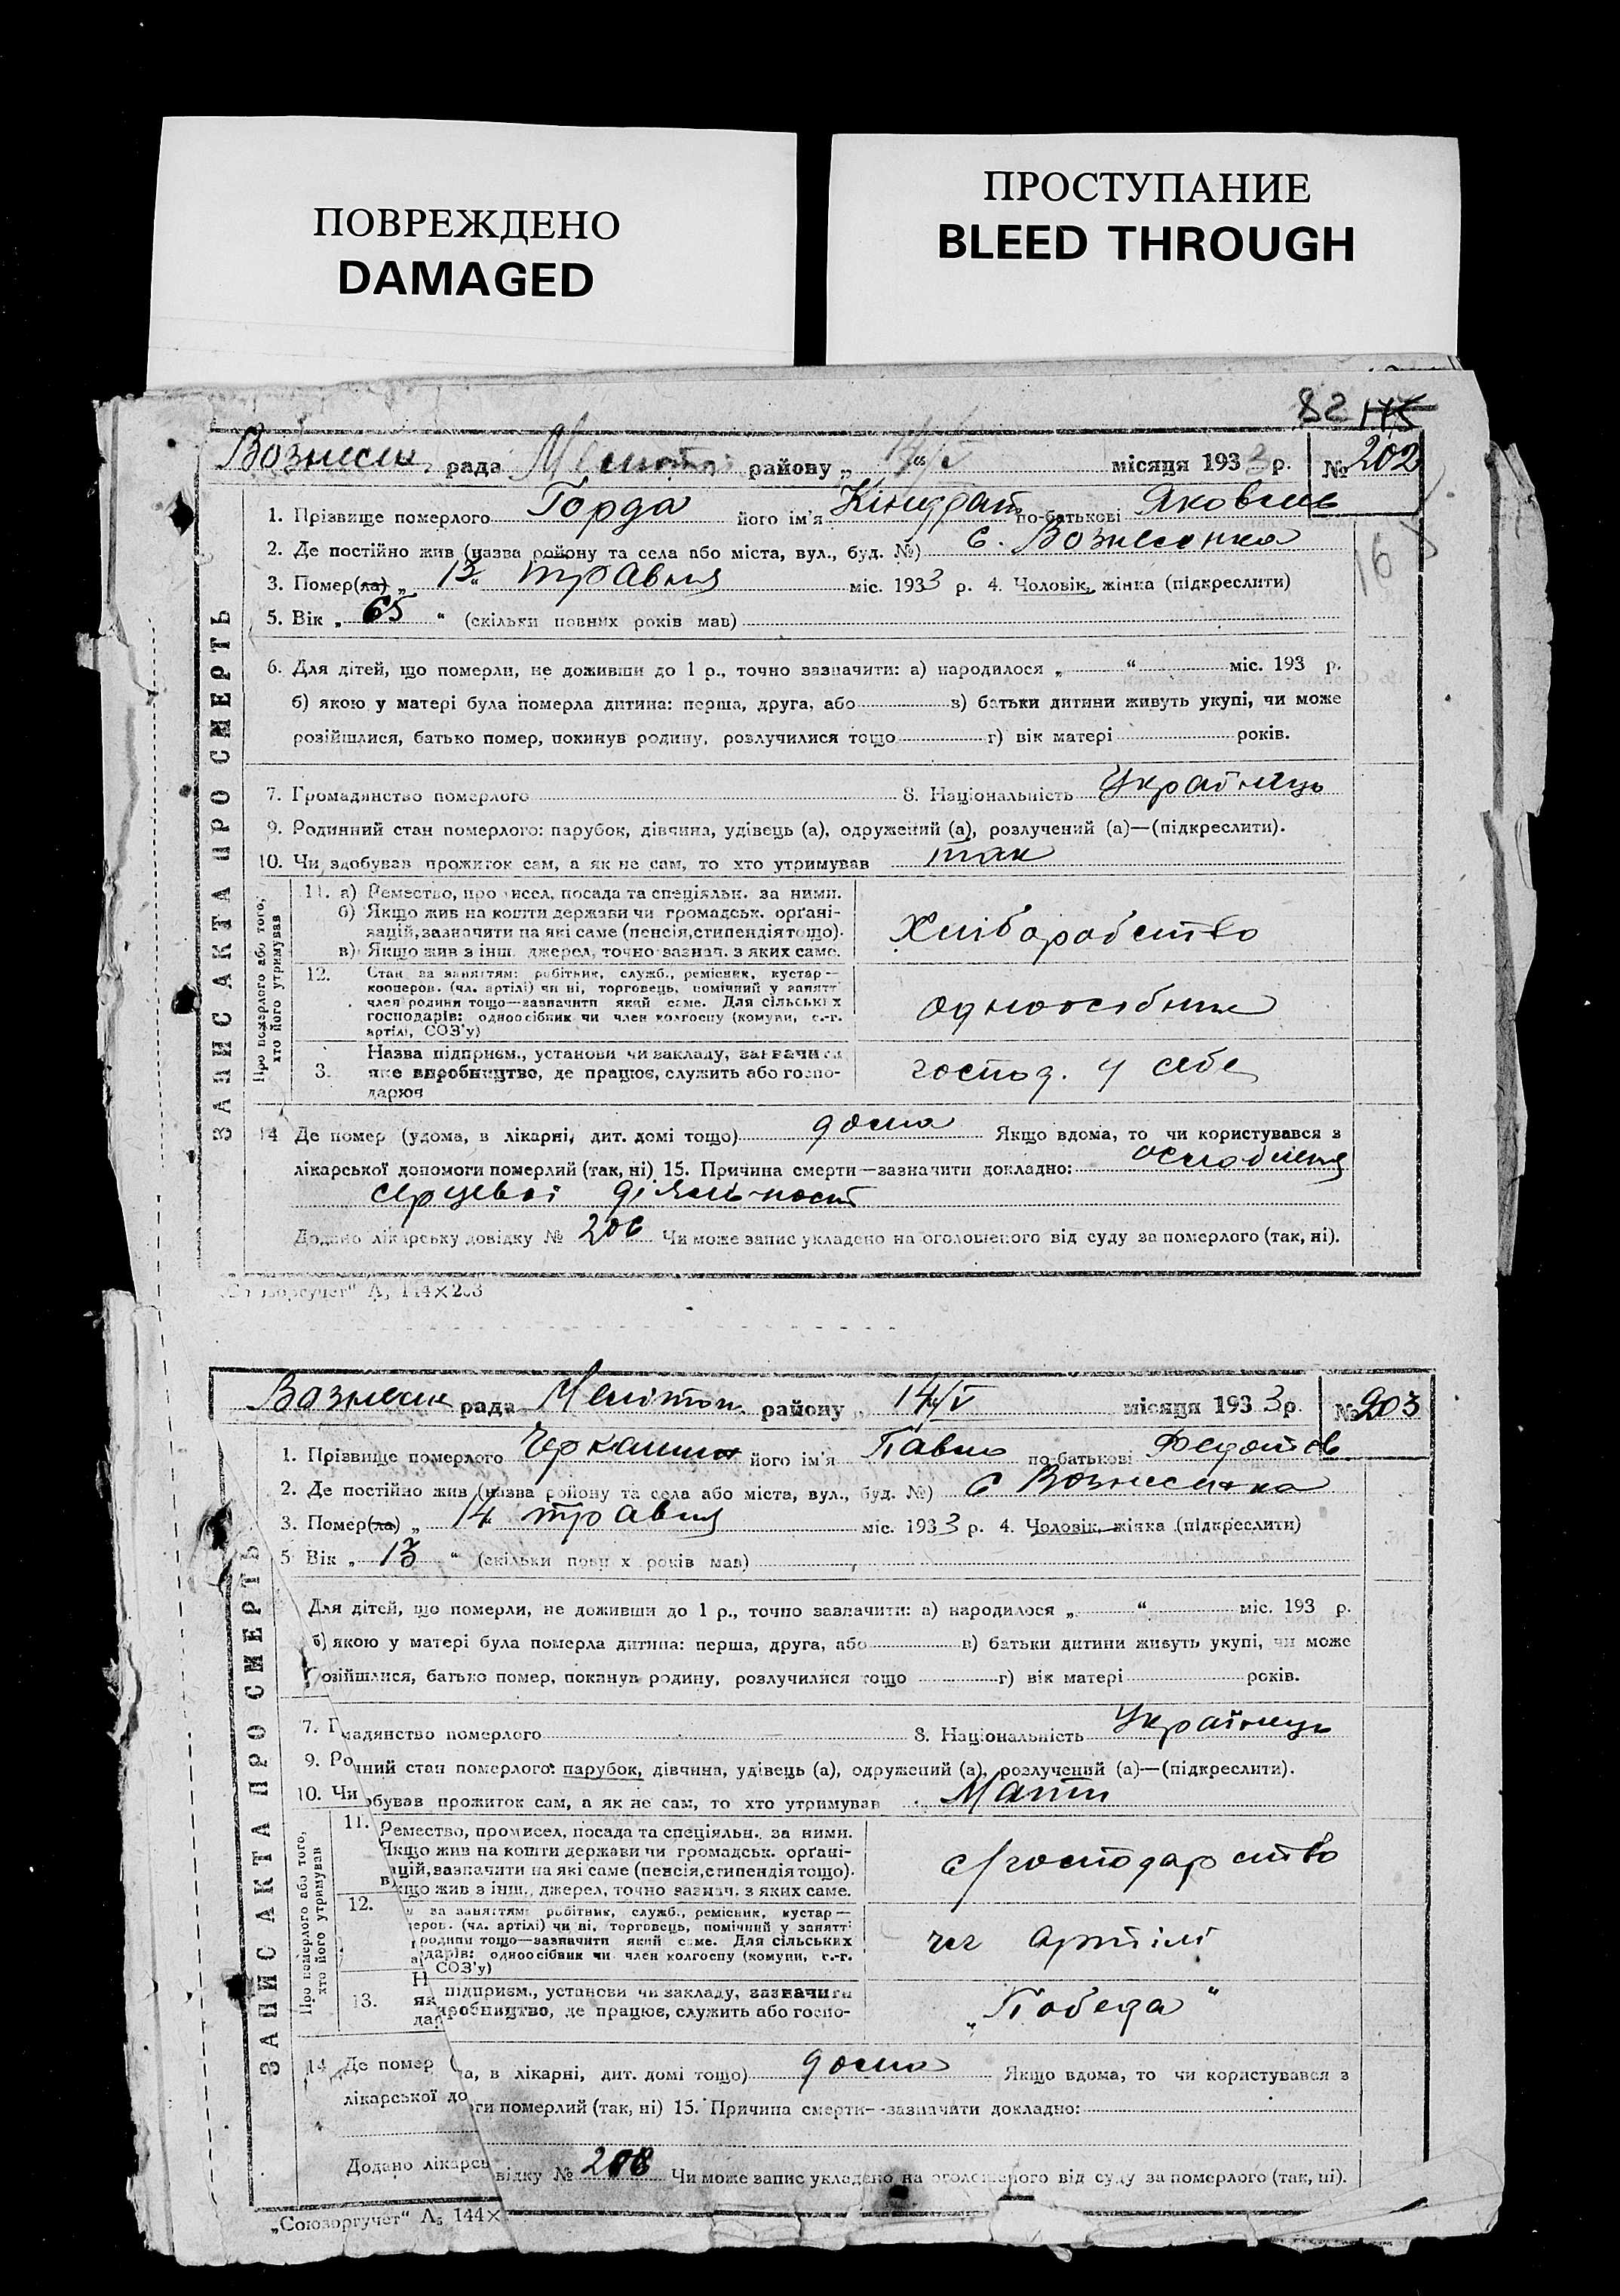 ПОВРЕЖДЕНО
DAMAGED
ПРОСТУПАНИЕ
BLEED THROUGH
82 145
Вознесен. рада Мелітоп. району „14/V“ місяця 1933 р. № 202
ЗАПИС АКТА ПРО СМЕРТЬ
1. Прізвище померлого Горда його ім'я Кіндрат по-батькові Яковлев
2. Де постійно жив (назва району та села або міста, вул., буд. №) с. Вознесенка
3. Помер(ла) „13“ травня міс. 1933 р. 4. Чоловік, жінка (підкреслити)
16
5. Вік „65“ (скільки повних років мав)
6. Для дітей, що померли, не доживши до 1 р., точно зазначити: а) народилося „ “ міс. 193 р.
б) якою у матері була померла дитина: перша, друга, або в) батьки дитини живуть укупі, чи може
розійшлися, батько помер, покинув родину, розлучилися тощо г) вік матері років.
7. Громадянство померлого 8. Національність Українець
9. Родинний стан померлого: парубок, дівчина, удівець (а), одружений (а), розлучений (а)—(підкреслити).
10. Чи здобував прожиток сам, а як не сам, то хто утримував так
Про померлого або того, хто його утримував
11. а) Ремество, промисел, посада та спеціяльн. за ними.
б) Якщо жив на кошти держави чи громадськ. орґані-
зацій, зазначити на які саме (пенсія, стипендія тощо).
в) Якщо жив з інш. джерел, точно зазнач. з яких саме.
Хліборобство
12. Стан за заняттям: робітник, служб., ремісник, кустар—
кооперов. (чл. артілі) чи ні, торговець, помічний у занятті
член родини тощо—зазначити який саме. Для сільських
господарів: одноосібник чи член колгоспу (комуни, с.-г.
артілі, СОЗ'у)
одноосібник
3. Назва підприєм., установи чи закладу, зазначити
яке виробництво, де працює, служить або госпо-
дарює
господ. у себе
14 Де помер (удома, в лікарні, дит. домі тощо) дома Якщо вдома, то чи користувався з
лікарської допомоги померлий (так, ні) 15. Причина смерти—зазначити докладно: ослаблення
серцевої діяльност
Додано лікарську довідку № 206 Чи може запис укладено на оголошеного від суду за померлого (так, ні).
„Союзоргучет“ А₅ 144×203
Вознесен рада Мелітоп. району „14/V місяця 1933 р. № 203
ЗАПИС АКТА ПРО СМЕРТЬ
1. Прізвище померлого Черкашин його ім'я Павло по-батькові Федотов
2. Де постійно жив (назва району та села або міста, вул., буд. №) с Вознесенка
3. Помер(ла) „14“ травня міс. 1933 р. 4. Чоловік, жінка (підкреслити)
5 Вік „13“ (скільки повн х років мав)
Для дітей, що померли, не доживши до 1 р., точно зазначити: а) народилося „ “ міс. 193 р.
б) якою у матері була померла дитина: перша, друга, або в) батьки дитини живуть укупі, чи може
озійшлися, батько помер, покинув родину, розлучилися тощо г) вік матері років.
7. Г мадянство померлого 8. Національність Українець
9. Ро нний стан померлого: парубок, дівчина, удівець (а), одружений (а), розлучений (а)—(підкреслити).
10. Чи обував прожиток сам, а як не сам, то хто утримував Мати
Про померлого або того, хто його утримував
11. Ремество, промисел, посада та спеціяльн. за ними.
Якщо жив на кошти держави чи громадськ. орґані-
ацій, зазначити на які саме (пенсія, стипендія тощо).
в) кщо жив з інш. джерел, точно зазнач. з яких саме.
с/господарство
12. за заняттям: робітник, служб., ремісник, кустар—
еров. (чл. артілі) чи ні, торговець, помічний у занятті
родини тощо—зазначити який саме. Для сільських
дарів: одноосібник чи член колгоспу (комуни, с.-г.
а СОЗ'у)
чл артілі
13. Н підприєм., установи чи закладу, зазначити
як иробництво, де працює, служить або госпо-
дар
„Победа“
14 Де помер ( а, в лікарні, дит. домі тощо) дома Якщо вдома, то чи користувався з
лікарської до оги померлий (так, ні) 15. Причина смерти—зазначити докладно:
Додано лікарсь відку № 208 Чи може запис укладено на оголошеного від суду за померлого (так, ні).
„Союзоргучет“ А₅ 144×